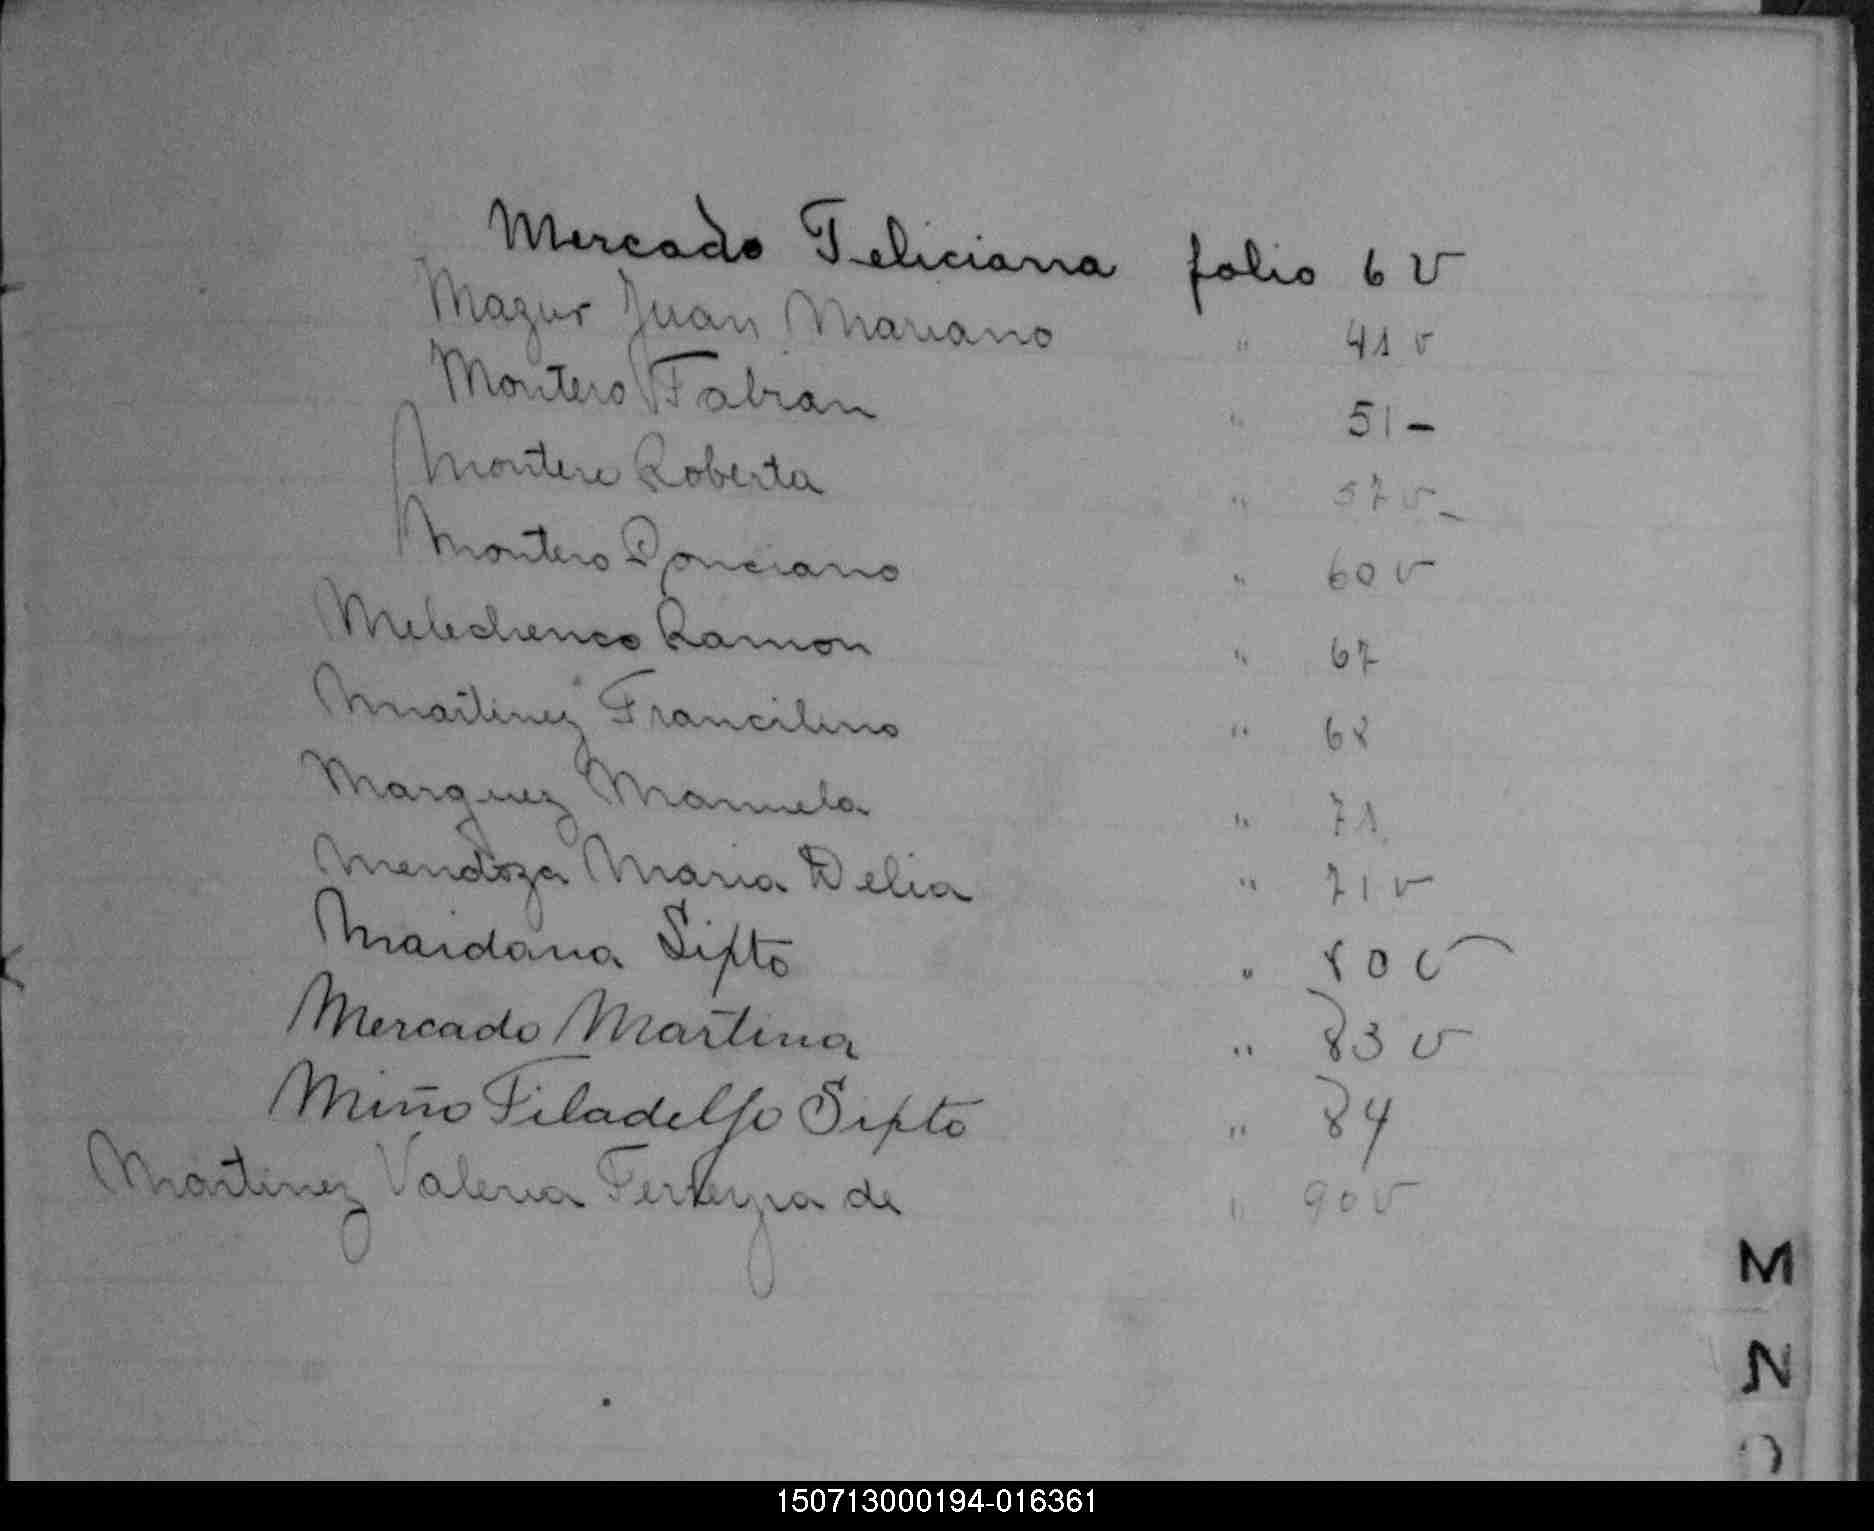 Mercado Feliciana folio 6 v
Mazur Juan Mariano " 41 v
Montero Fabian " 51 -
Montero Roberta " 57 v -
Montero Ponciano " 60 v
Melechenco Ramon " 67
Martinez Francilino " 68
Marquez Manuela " 71
Mendoza Maria Delia " 71 v
Maidana Sixto " 80 v
Mercado Martina " 83 v
Miño Filadelfo Sixto " 84
Martinez Valeria Ferreyra de " 90 v
M
N
150713000194-016361